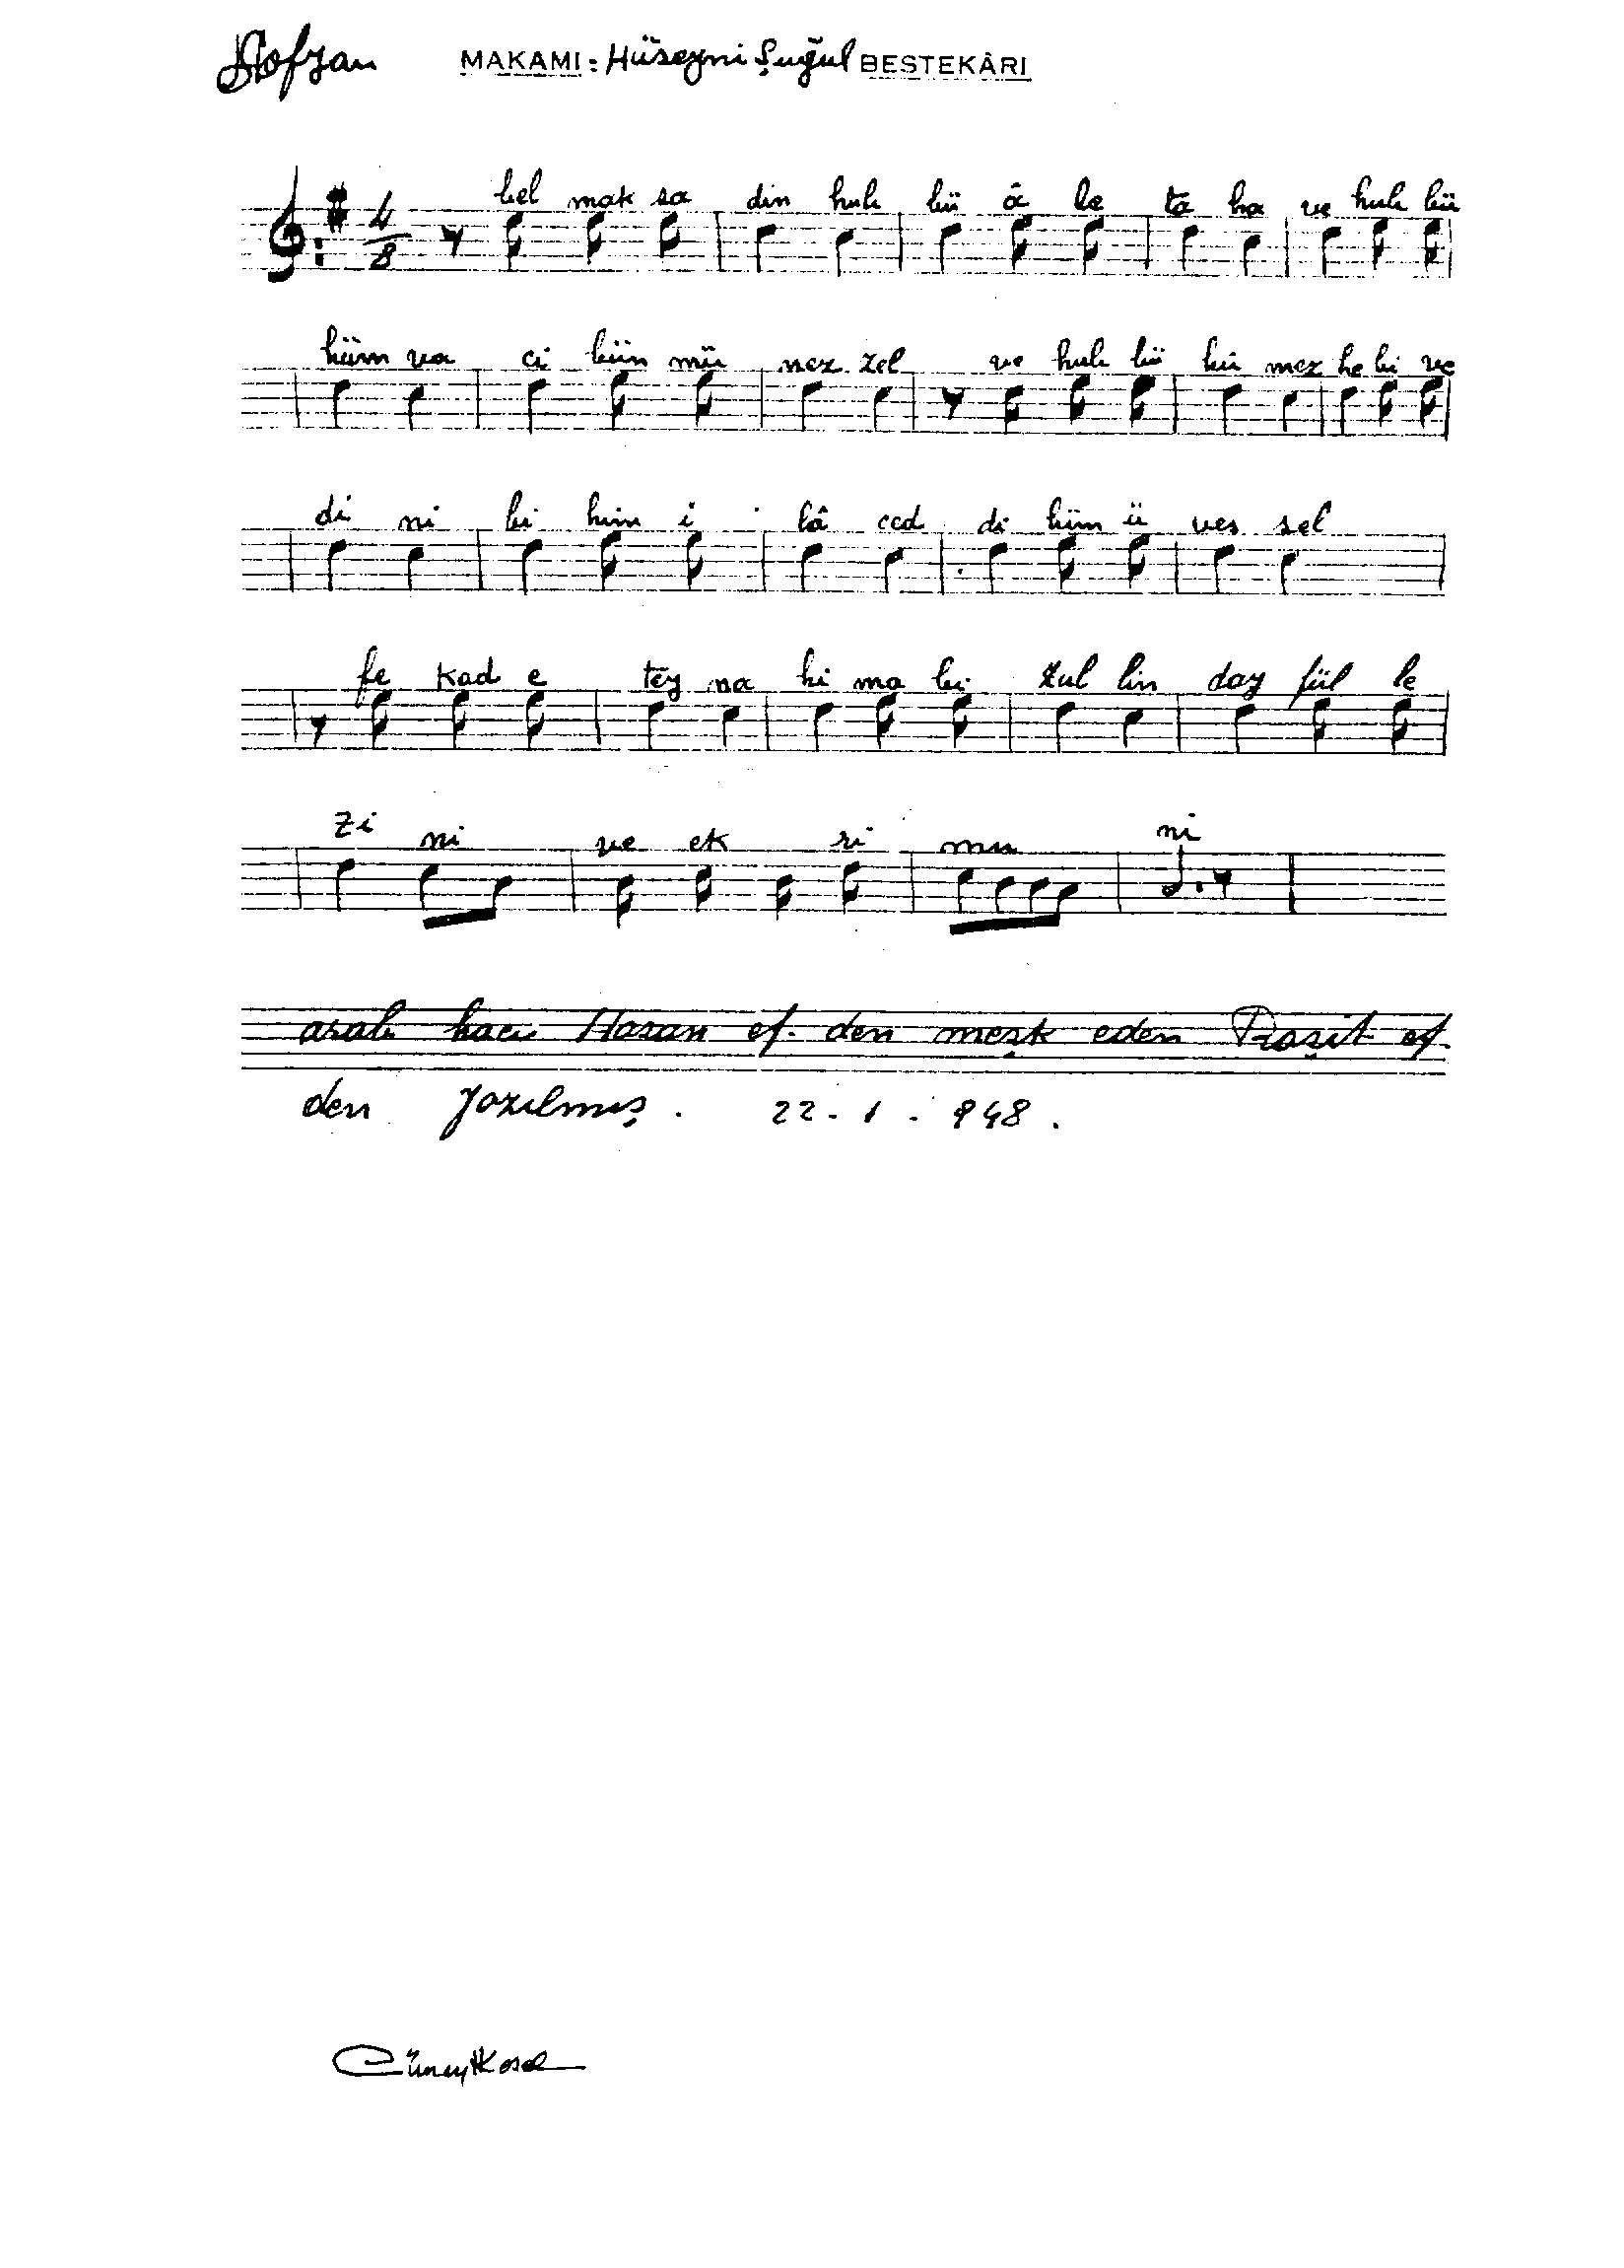 Sofyan MAKAMI: Hüseyni Şuğul BESTEKÂRI
4
8
bel mak sa din hub bü â le ta ha ve hub bü
hüm va ci bün mü nez zel ve hub bü hü mez he bi ve
di ni bi him i lâ ced di hüm ü ves sel
fe kad e tey na ki ma bi zul lin day fül le
zi ni ve ek ri mu ni
arab hacı Hasan ef. den meşk eden Raşit ef.
den yazılmış. 22-1-948.
Cüneyt Kosal